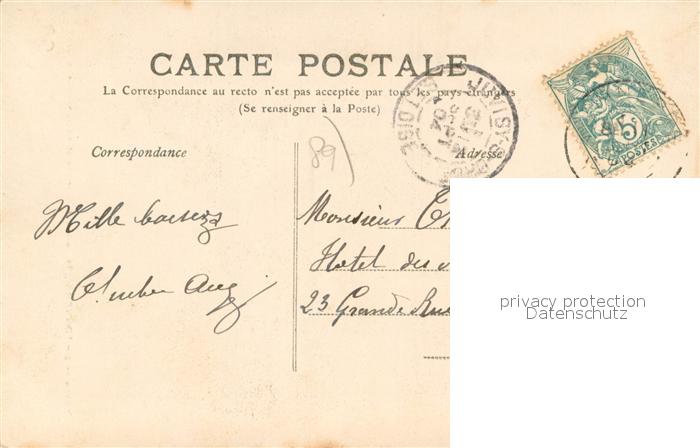 CARTE POSTALE
La Correspondance au recto n'est pas acceptée par tous les pays étrangers
(Se renseigner à la Poste)
Correspondance
Adresse
89)
5c
POSTES
Mille baisers
Monsieur
Hotel des
23 Grande Rue
privacy protection
Datenschutz